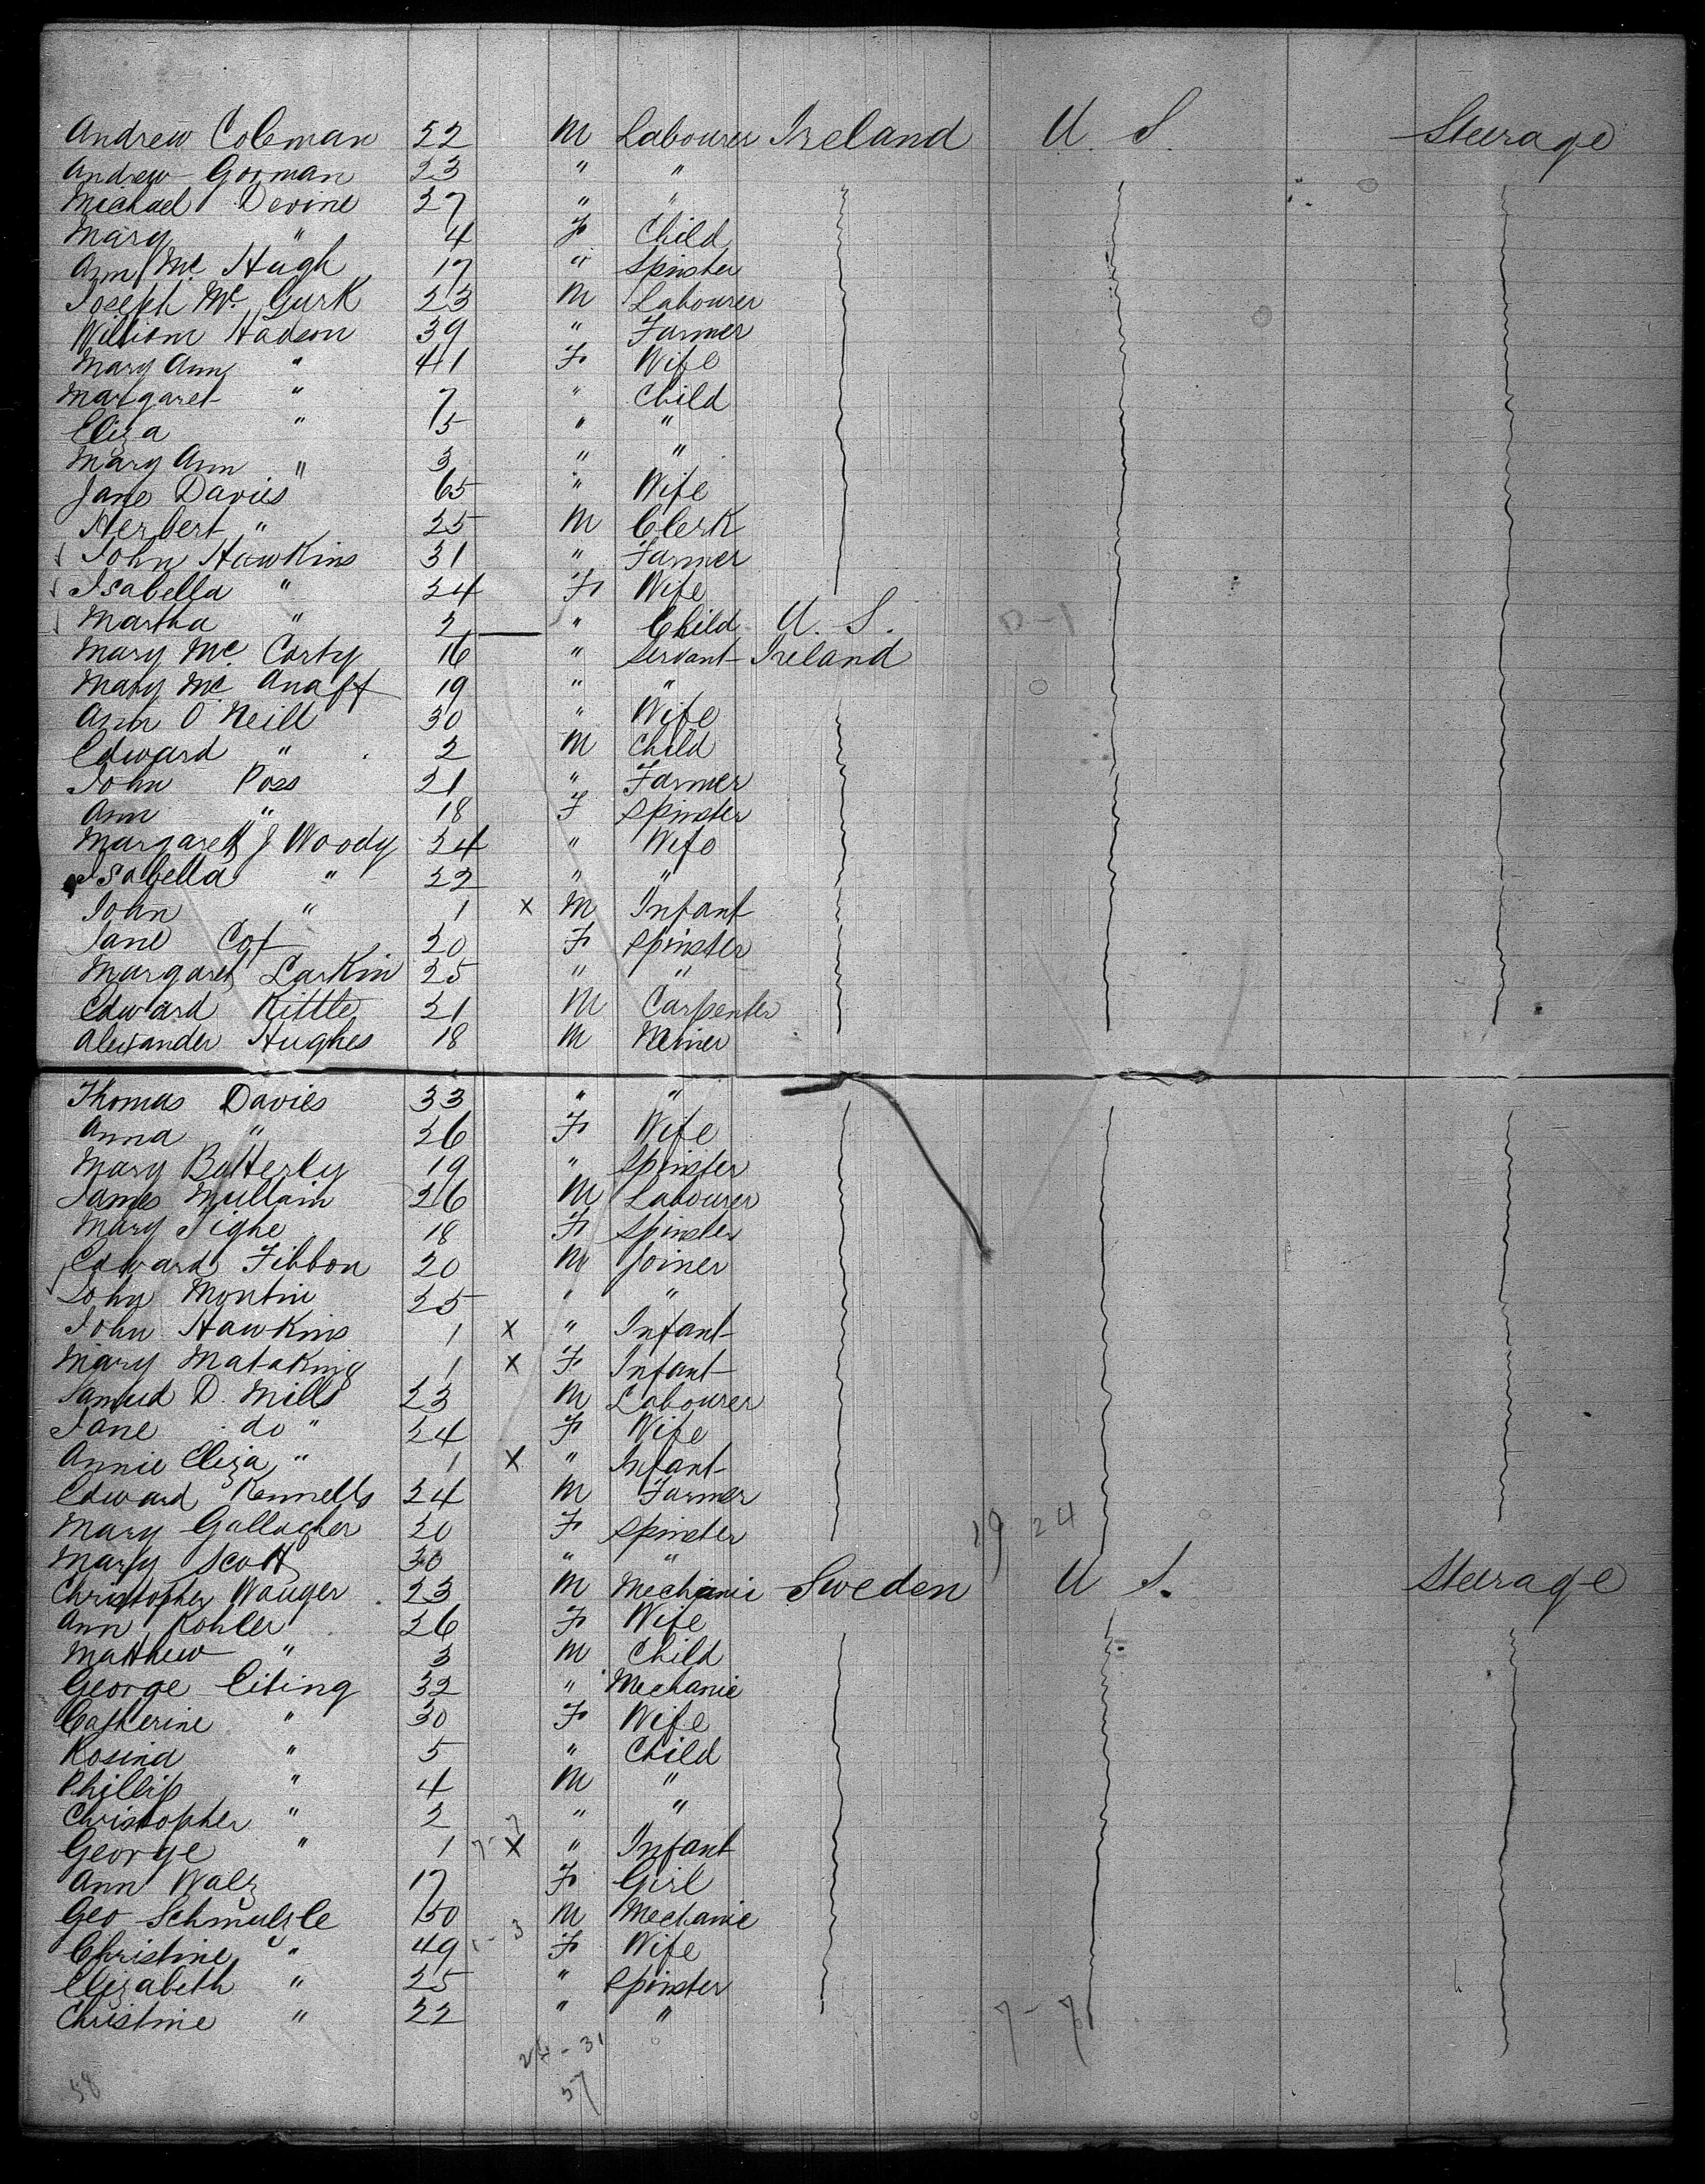 Andrew Coleman 22 M Labourer Ireland U. S. Steerage
Andrew Gorman 23 " "
Michael Devine 27 " "
Mary " 4 F Child
Ann Mc Hugh 17 " Spinster
Joseph Mc Gurk 23 M Labourer
William Hadson 39 " Farmer
Mary Ann " 41 F Wife
Margaret " 7 " Child
Eliza " 5 " "
Mary Ann " 3 " "
Jane Davies 65 " Wife
Herbert " 25 M Clerk
John Hawkins 31 " Farmer
Isabella " 24 F Wife
Martha " 2 " Child U. S.
Mary Mc Carty 16 " Servant Ireland
Mary Mc 19 " "
Ann O'Neill 30 " Wife
Edward " 2 M Child
John Poss 21 " Farmer
Ann " 18 F Spinster
Margaret J Woody 24 " Wife
Isabella " 22 " "
John " 1 x M Infant
Jane 20 F Spinster
Margaret Larkin 25 " "
Edward Kittle 21 M Carpenter
Alexander Hughes 18 M Miner
Thomas Davies 33 " "
Anna " 26 F Wife
Mary Butterly 19 " Spinster
James Mullain 26 M Labourer
Mary Tighe 18 F Spinster
Edward Fibbon 20 M Joiner
John Montine 25 " "
John Hawkins 1 x " Infant
Mary 1 x F Infant
Samuel D. Mills 23 M Labourer
Jane do " 24 F Wife
Annie Eliza " 1 x " Infant
Edward Kennells 24 M Farmer
Mary Gallagher 20 F Spinster 19 24
Mary Scott 30 " "
Christopher Wauger 23 M Mechanic Sweden U S. Steerage
Ann Kohler 26 F Wife
Matthew " 3 M Child
George Eiting 32 " Mechanic
Catherine " 30 F Wife
Rosina " 5 " Child
Phillip " 4 M "
Christopher " 2 " "
George " 1 7-7 x " Infant
Ann Walz 17 F Girl
Geo Schmulzle 50 M Mechanic
Christine " 49 1-3 F Wife
Elizabeth " 25 " Spinster
Christine " 22 " " 7-7
24-31
58 57